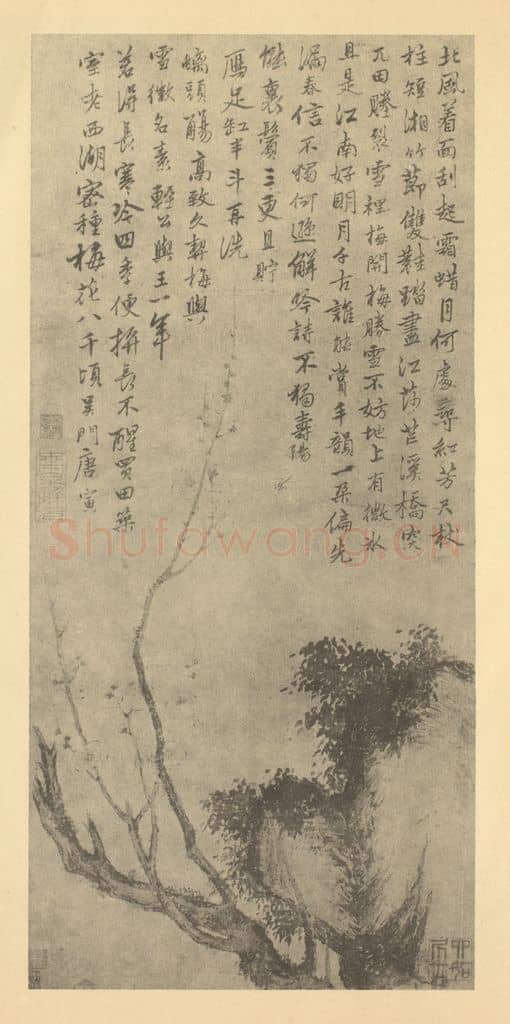 北風着面刮起霜蜡月何處尋紅芳尺杖
柱短湘竹節雙鞋踏盡江莎芒溪橋突
兀田塍裂雪裡梅開梅勝雪不妨地上有微冰
且是江南好明月千古誰能賞手韻一朵偏先
漏春信不獨何遜解吟詩不獨壽陽
裏鬢三更且貯
鴈足缸半斗再洗
螭頭觴高致久契梅與
雪微名素輕公與王一年
若得長寒冷四季便拚長不醒買田築
室老西湖密種梅花八千頃吳門唐寅
Shufawang.CN